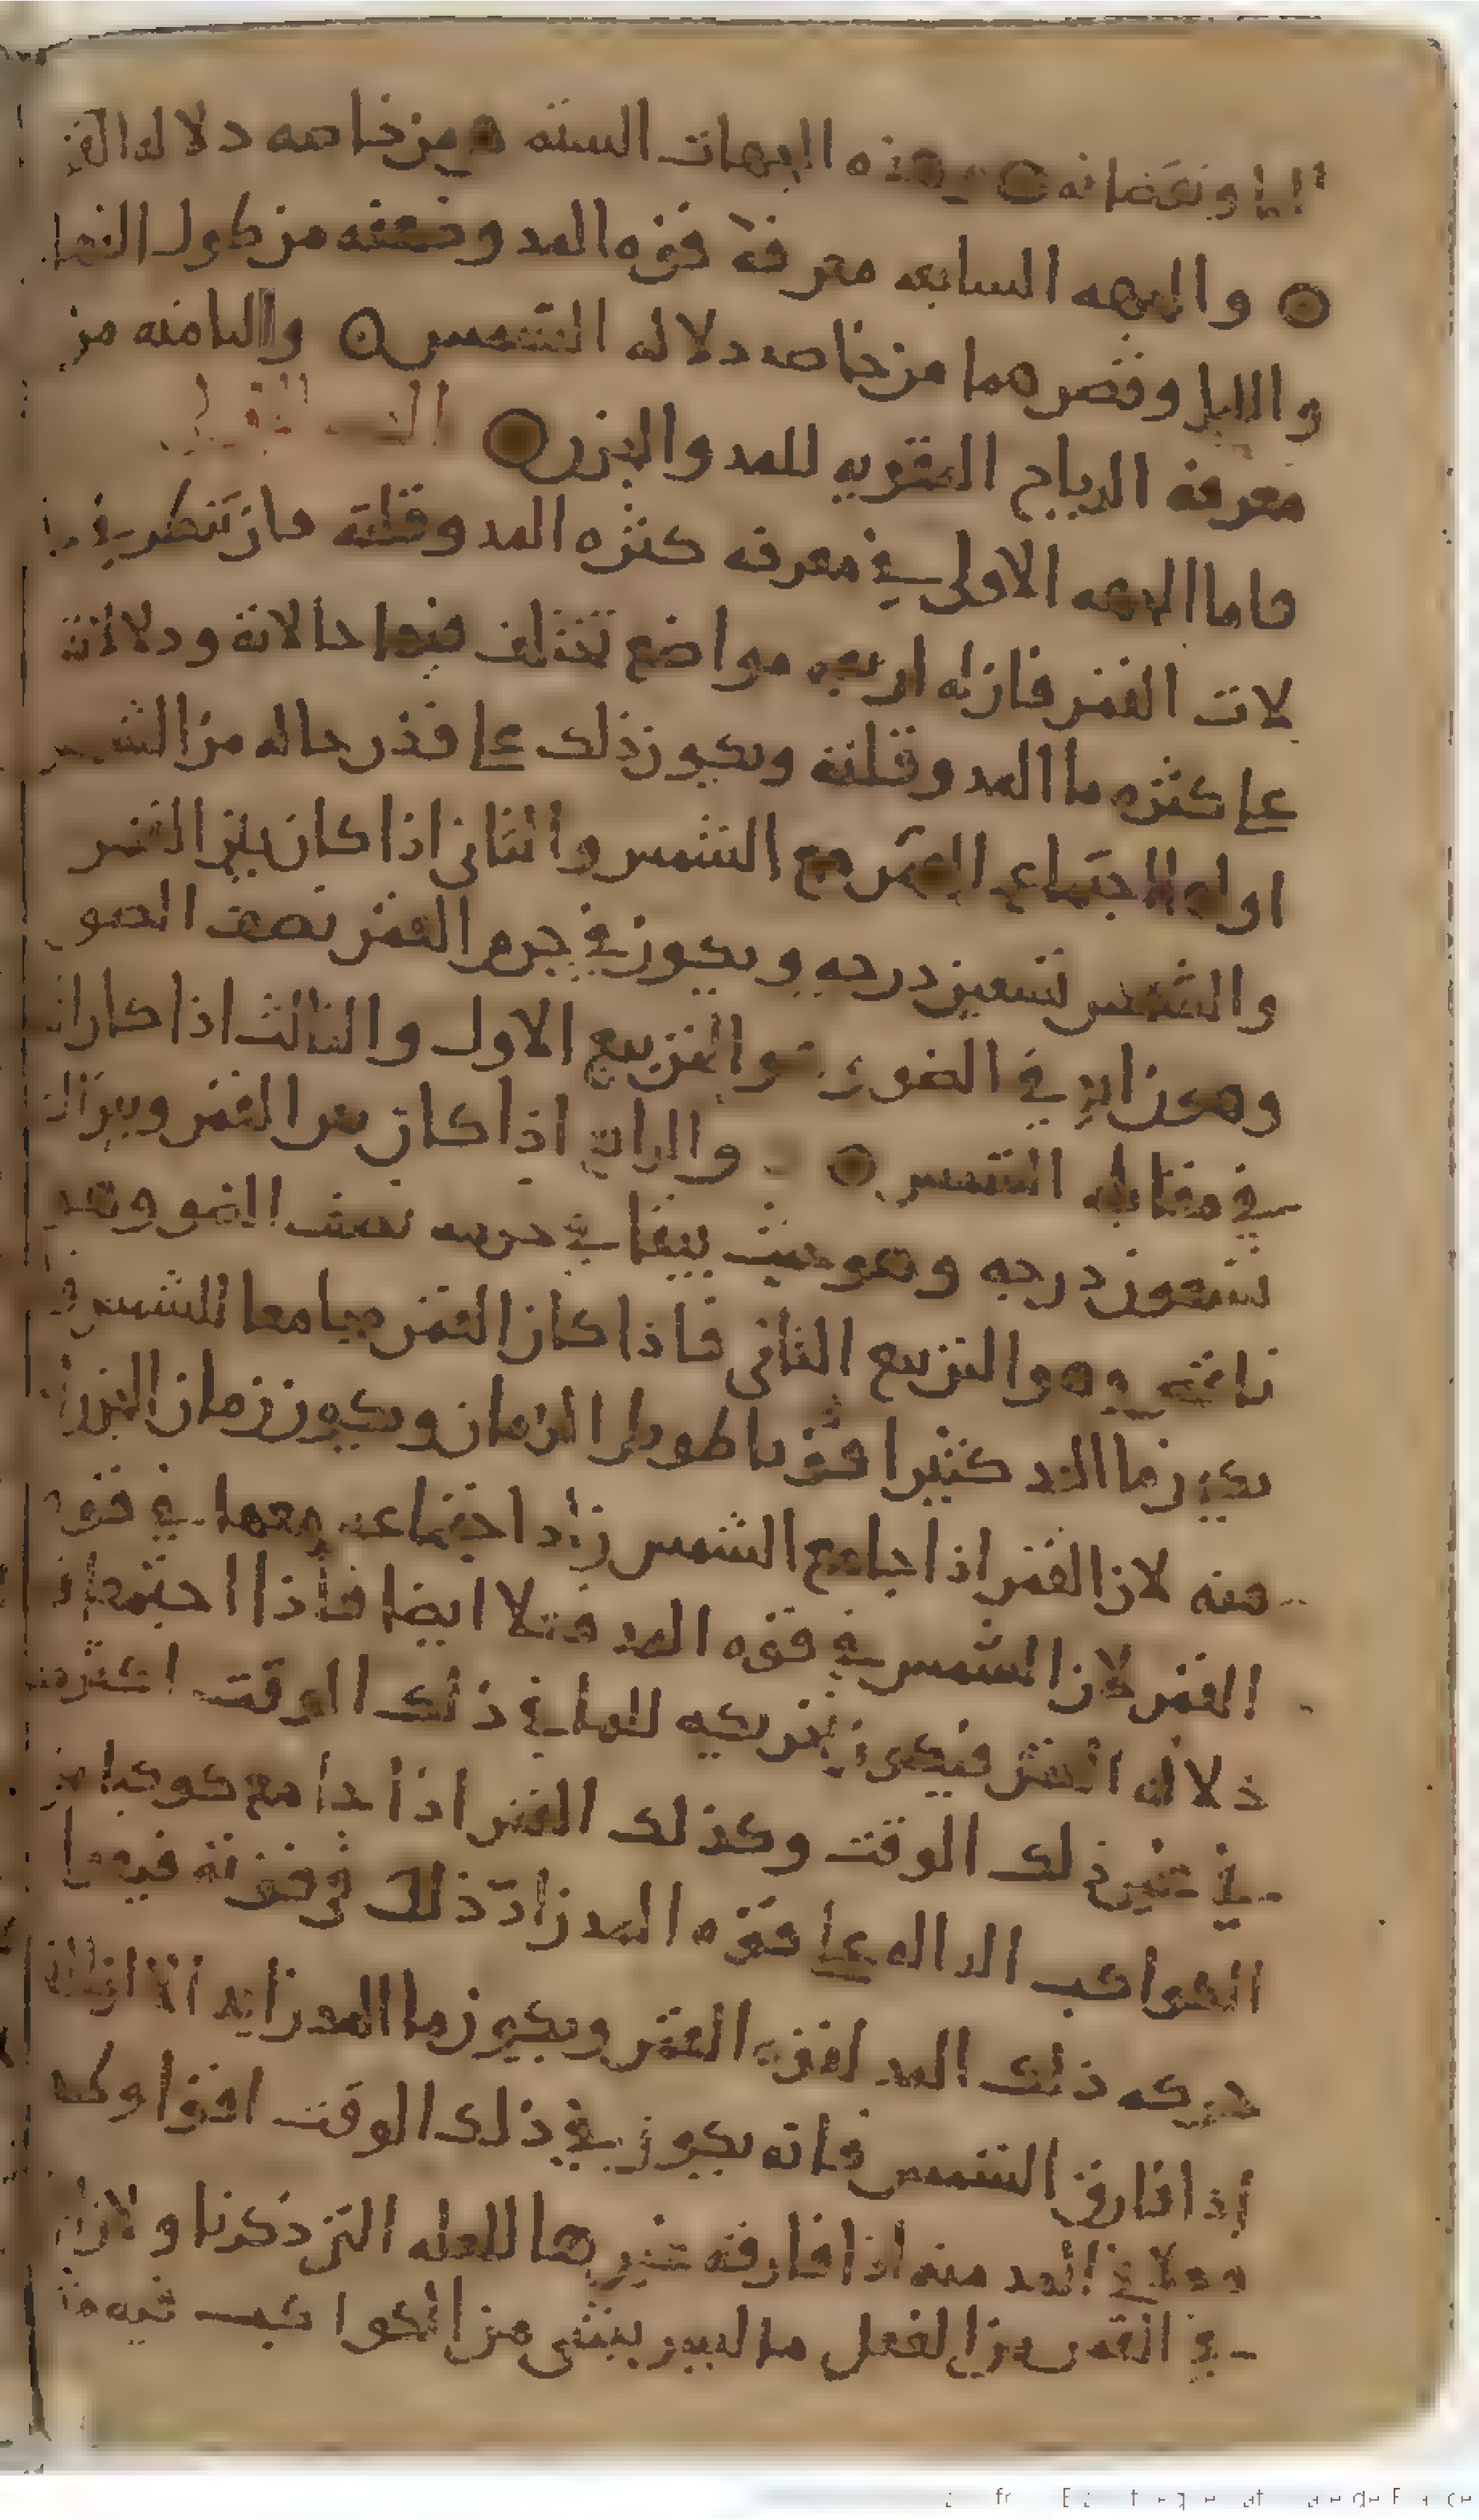 الما ونقصانه ○ وهذه الجهات السته ه من خاصه دلاله القمر
○ والجهه السابعه معرفة قوه المد وضعفه من طول النهار
والليل وقصرهما من خاصه دلاله الشمس ○ والثامنه من
معرفه الرياح المقويه للمد والجزر ○
فاما الجهه الاولى في معرفه كثره المد وقلته فان تنظر في
لات القمر فان له اربعه مواضع تختلف فيها حالاته ودلالته
على كثره ما المد وقلته ويكون ذلك على قدر حاله من الشمس
اولها اجتماع القمر مع الشمس والثاني اذا كان بين القمر
والشمس تسعين درجه ويكون في جرم القمر نصف الضو
وهو زايد في الضو وهو التربيع الاول والثالث اذا كان
في مقابله الشمس ○ والرابع اذا كان بين القمر وبين
تسعون درجه وهو حيث يبقا في جرمه نصف الضو وهو
ناقص وهو التربيع الثاني فاذا كان القمر مجامعا للشمس
يكون ما المد كثيرا قويا طويل الزمان ويكون زمان الجزر
منه لان القمر اذا جامع الشمس زاد اجتماعه معها في قوه
القمر لان الشمس في قوه المد فعلا ايضا فاذا اجتمعا
دلاله القمر فيكون تحريكه للما في ذلك الوقت اكثر منه
في غير ذلك الوقت وكذلك القمر اذا جامع كوكبا من
الكواكب الداله على قوه المد زاد ذلك في قوته فيهما
حركه ذلك المد لقوه القمر ويكون ما المد زايد الا انه
اذا فارق الشمس فانه يكون في ذلك الوقت اقوا وك
فعلا في المد منه اذا فارقه غيرها للعله التي ذكرنا ولان
في القمر من الفعل ما ليس بشي من الكواكب فيه